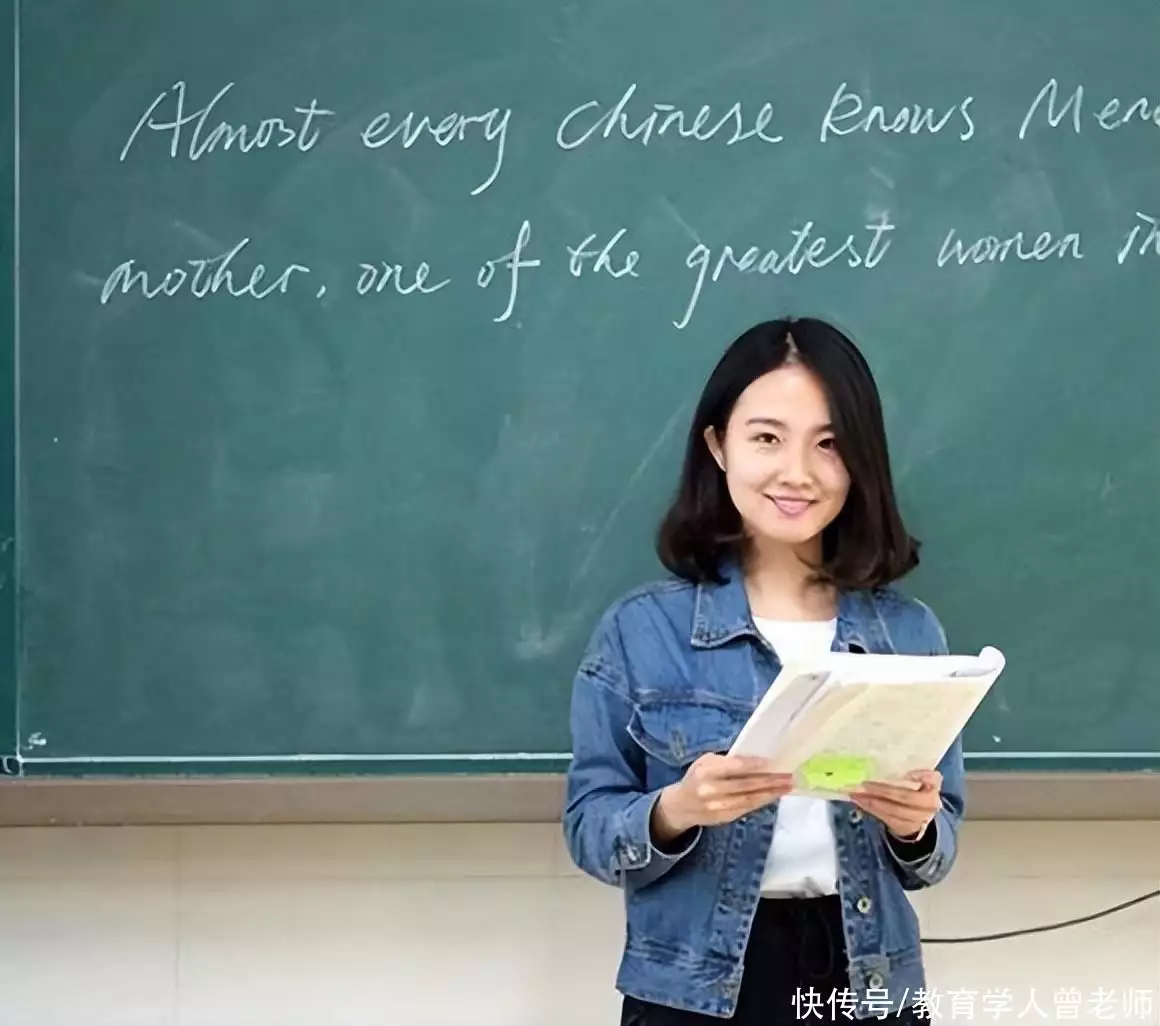 Almost every Chinese knows Men
mother, one of the greatest women in
快传号/教育学人曾老师